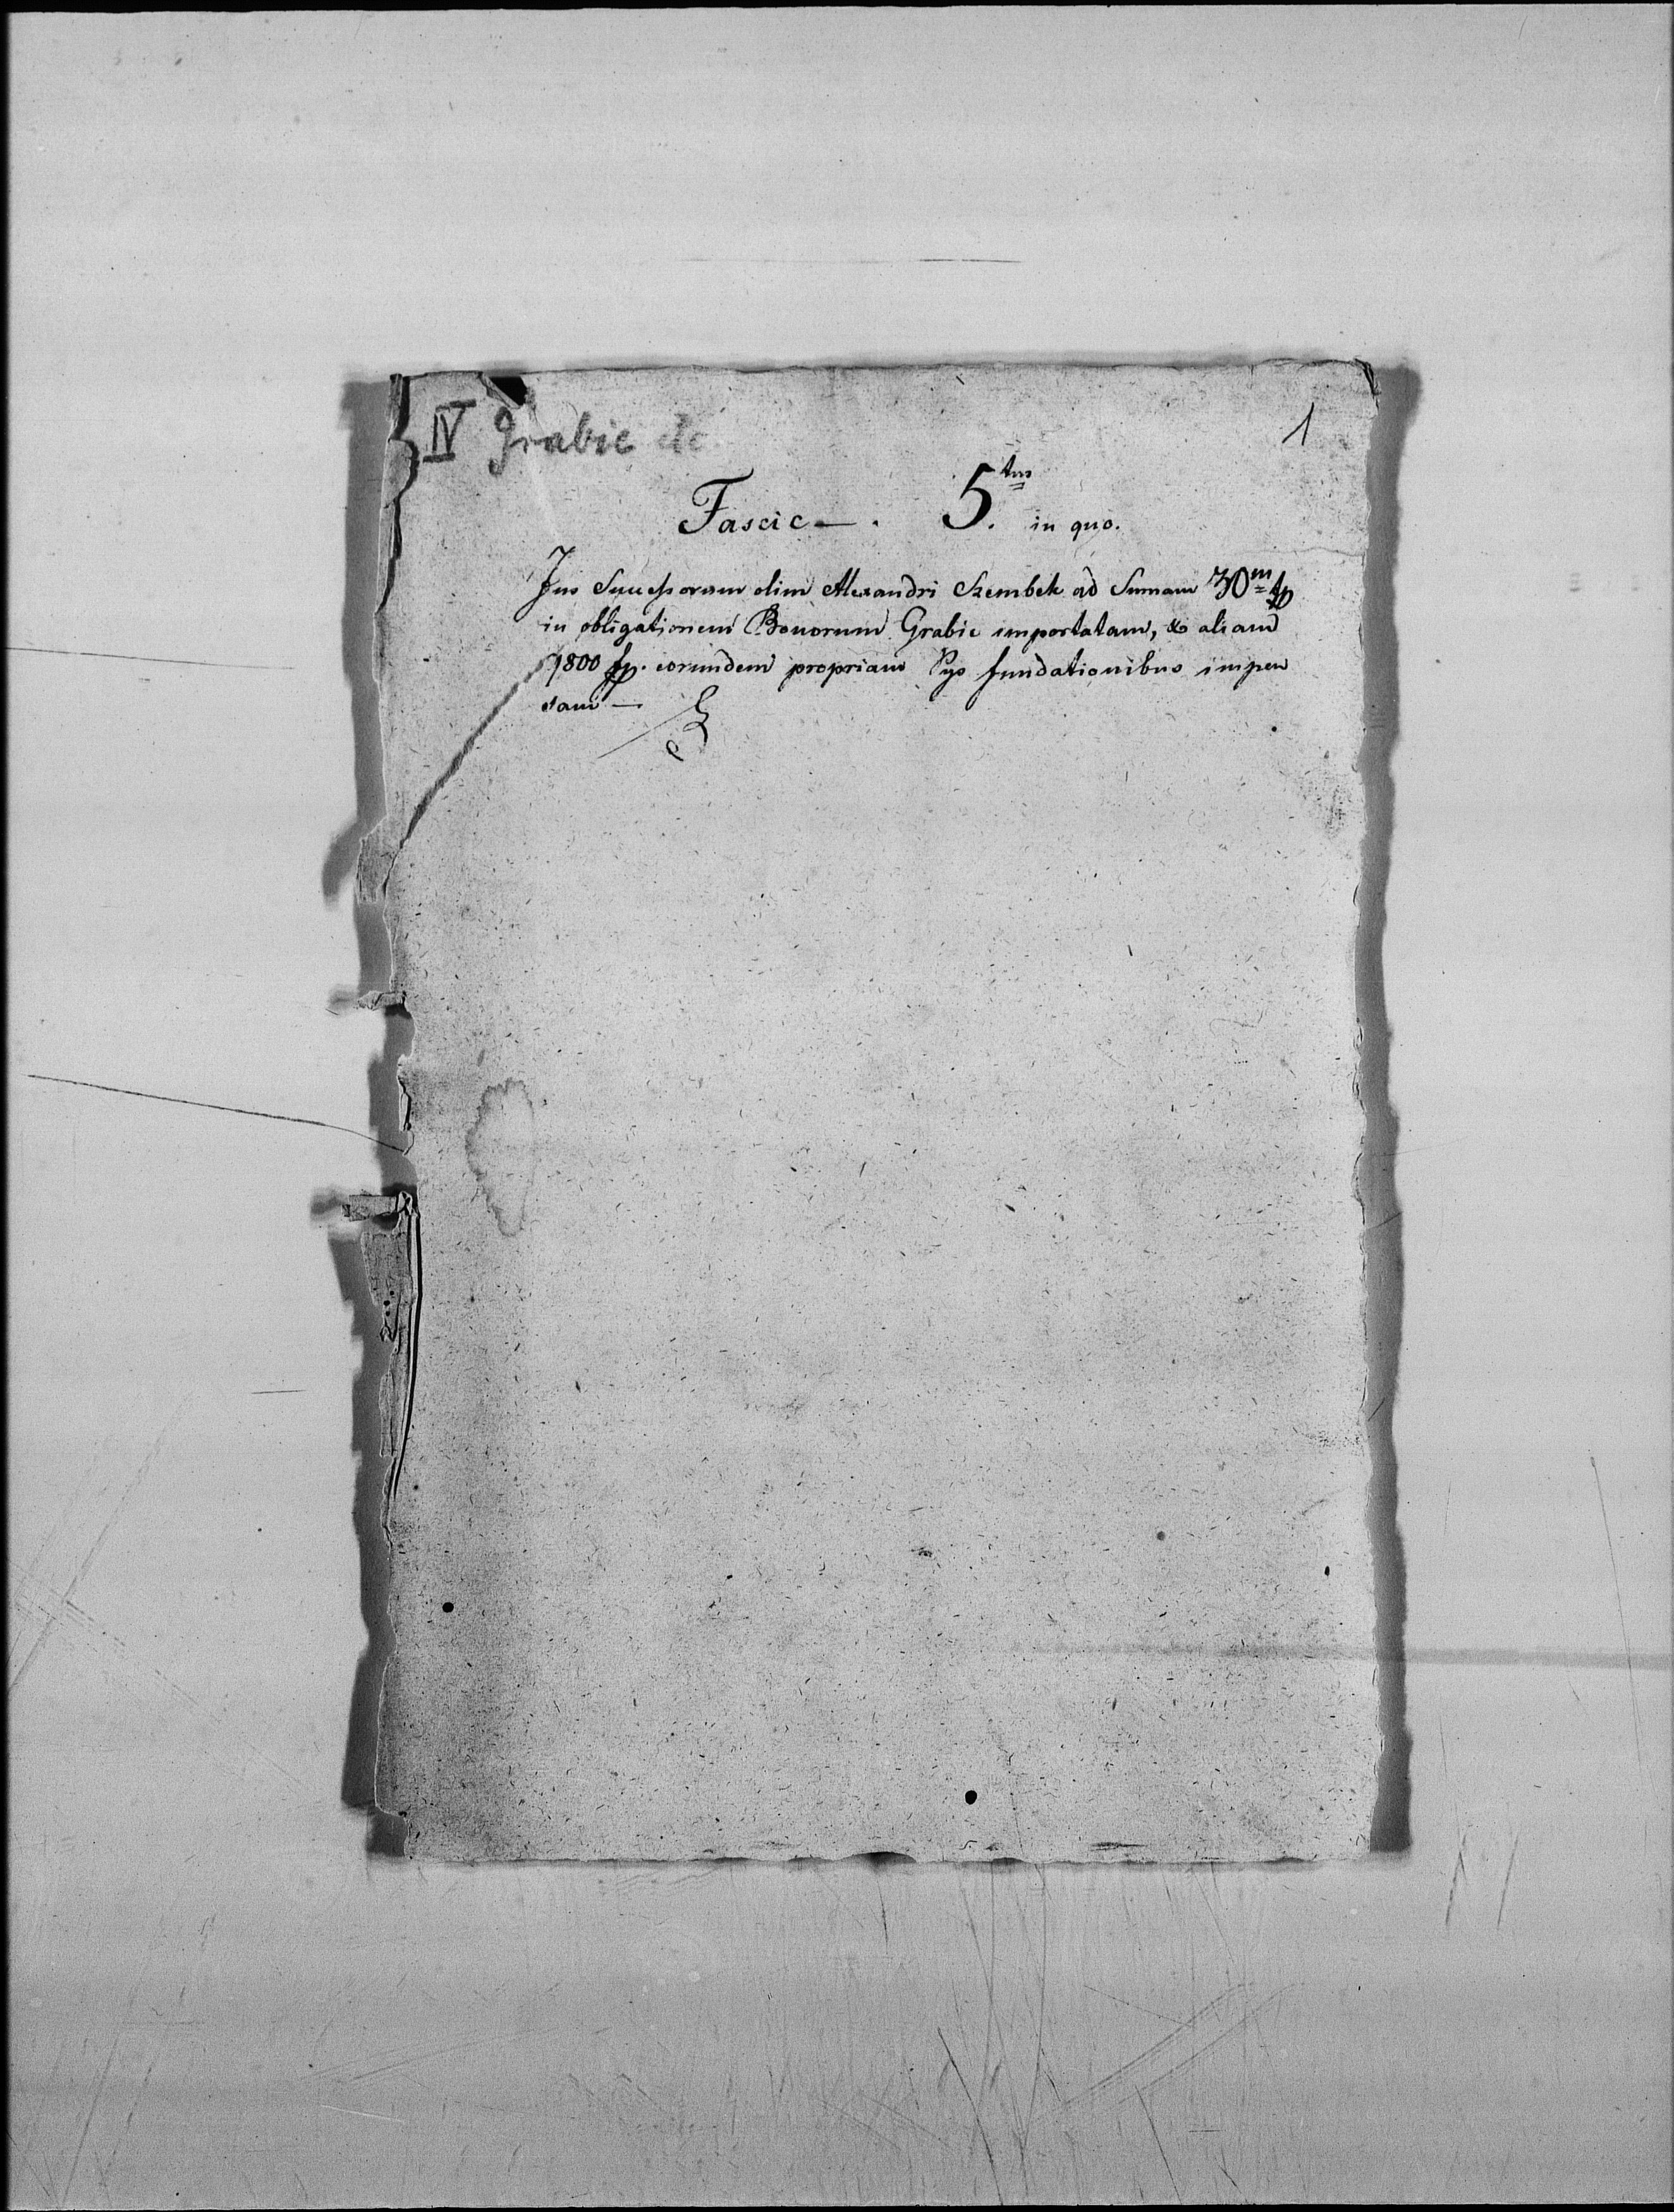 IV Grabie etc
1
Fascic—. 5.tus in quo.
Jus Successorum olim Alexandri Szembek ad Sumam 30m fp
in obligationem Bonorum Grabie importatam, & aliam
1800 fp. eorundem propriam Pys fundationibus impen
sam —